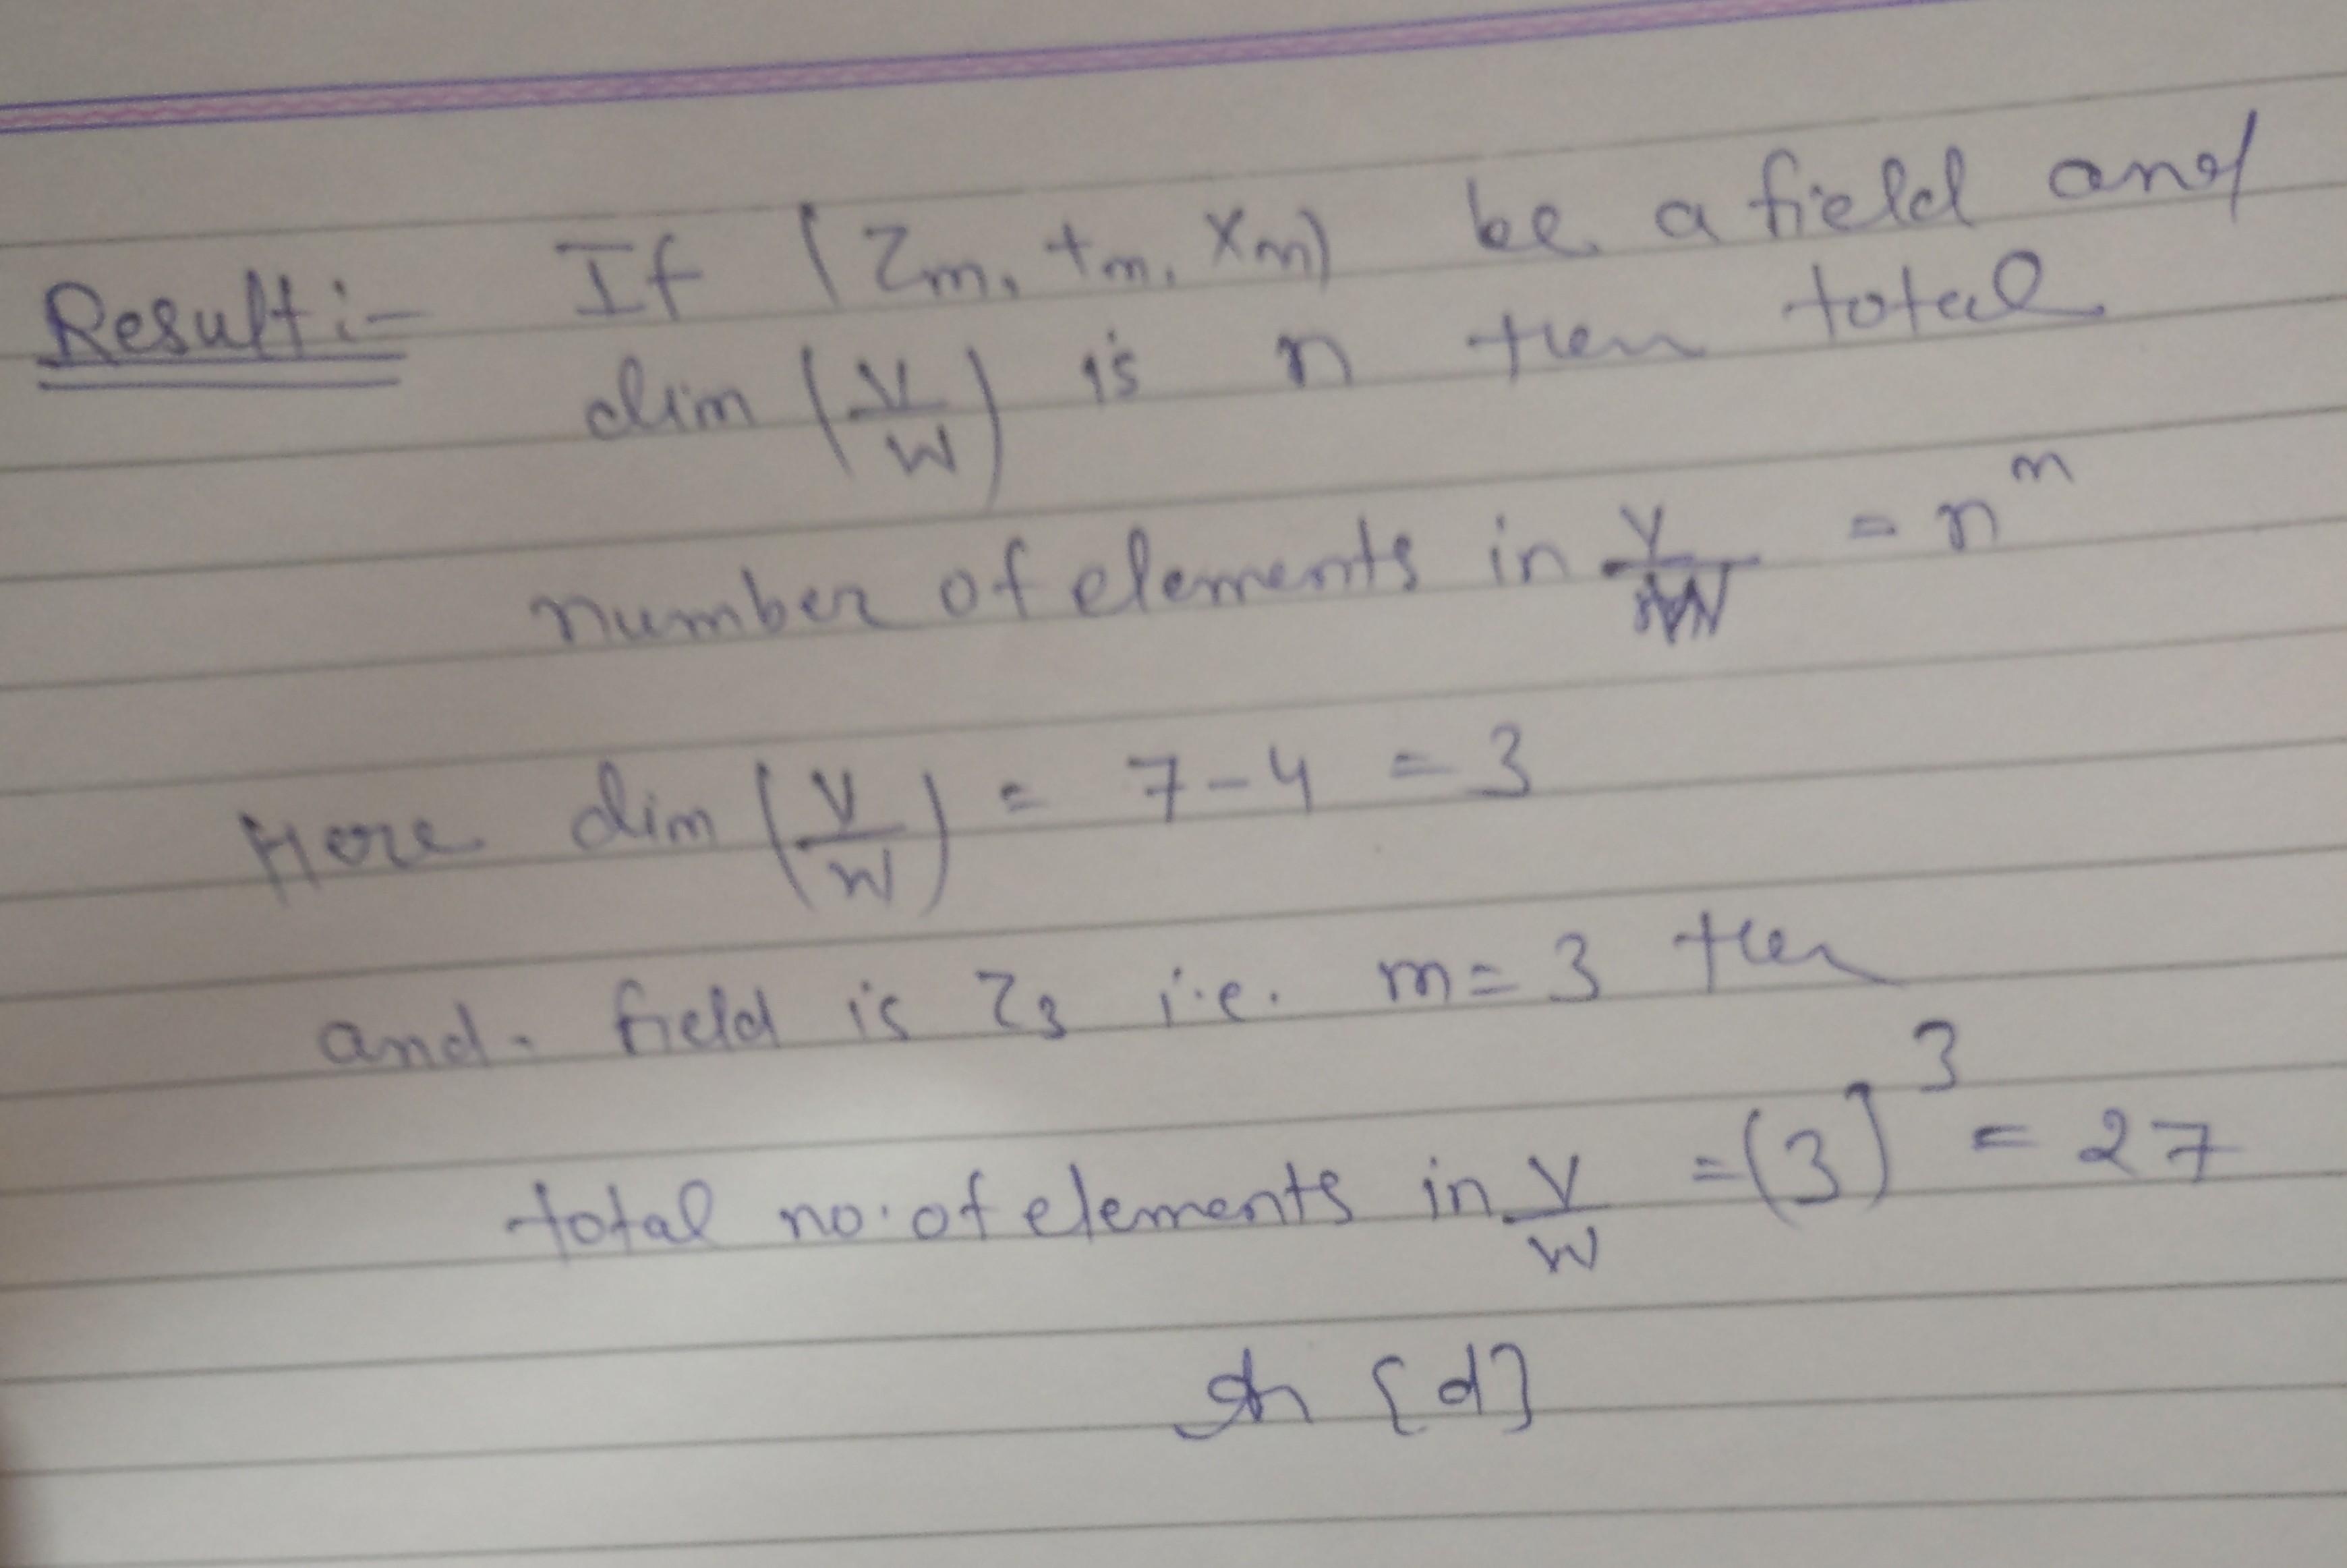 Result:- If (Zm, +m, Xm) be a field and
dim (V/W) is n then total
number of elements in V/W = n^m
Here dim (V/W) = 7-4 = 3
and field is Z3 i.e. m=3 then
total no. of elements in V/W =(3)^3 = 27
[d]